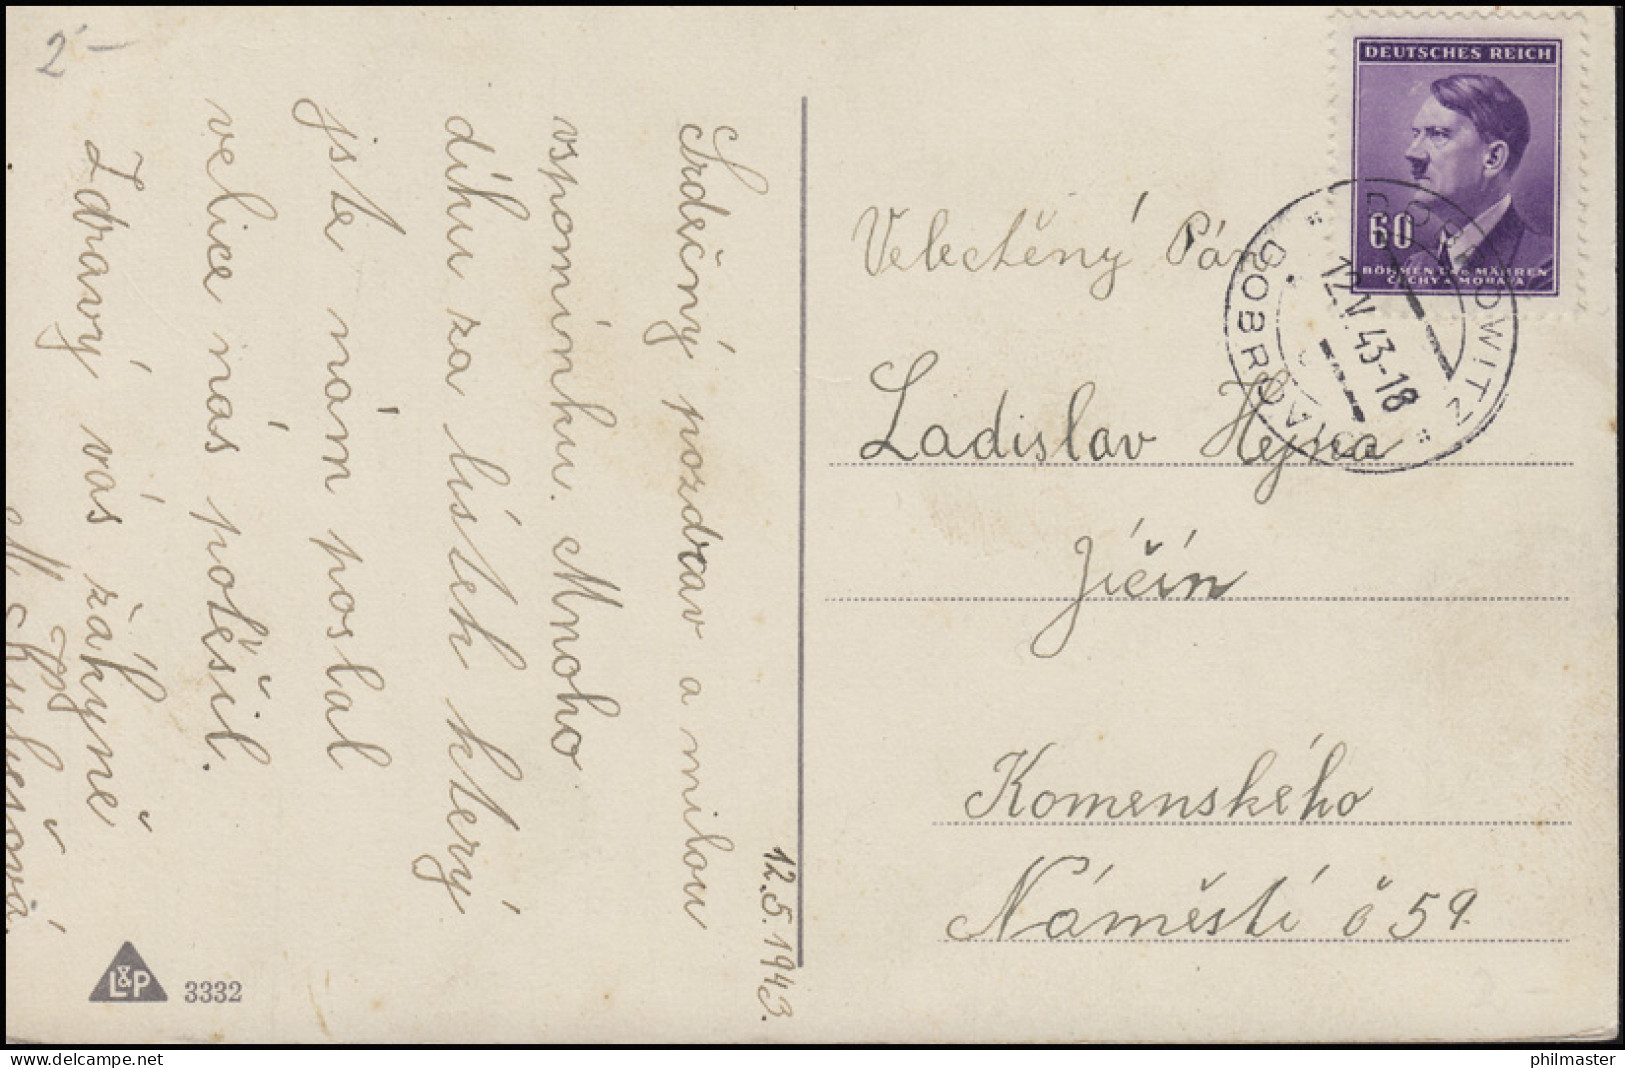 2´–
Srdečný pozdrav a milou
vspomínku. Mnoho
díku za lístek který
jste nám poslal
velice nás potěšil.
Zdravý vás žákyně
12.5.1943.
L&P 3332
DEUTSCHES REICH
60
BÖHMEN UND MÄHREN
ČECHY A MORAVA
DOBROWITZ
12.V.43-18
DOBROVICE
Velectěný Pán
Ladislav Hejna
Jičín
Komenského
Náměstí č 59.
philmaster